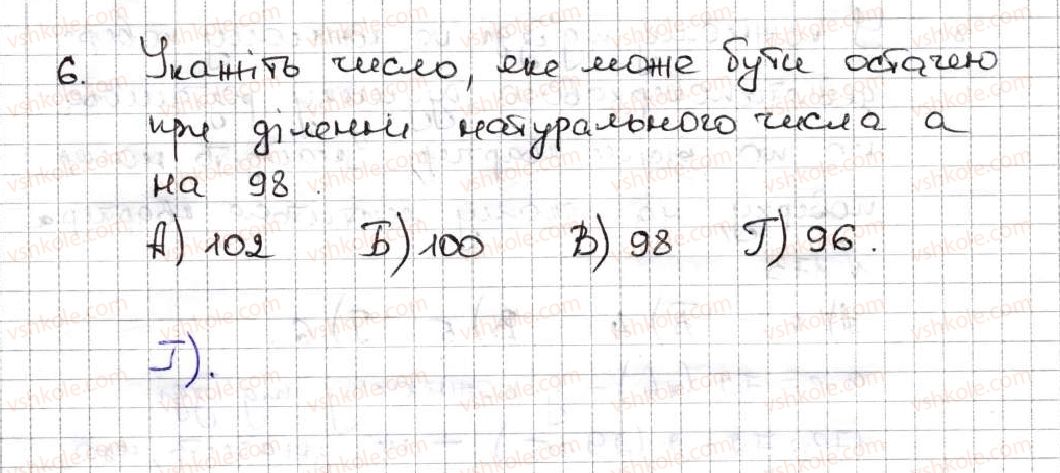 6. Укажіть число, яке може бути остачею
при діленні натурального числа a
на 98.
А) 102 Б) 100 В) 98 Г) 96.
Г).